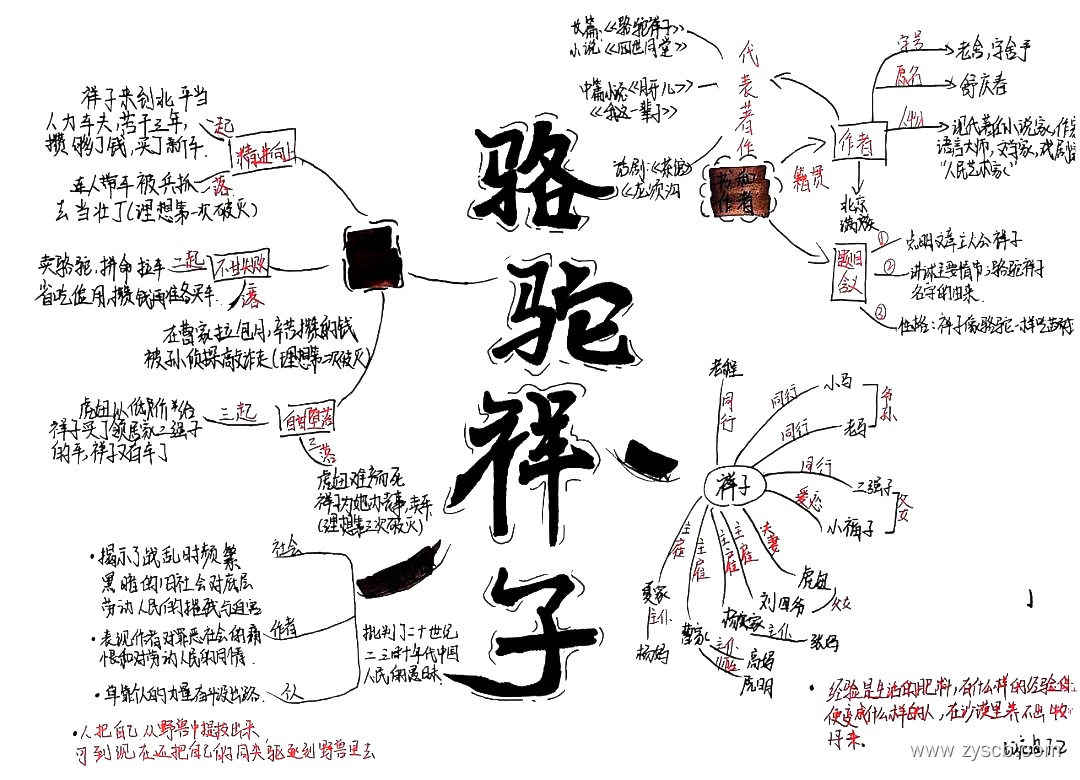 骆驼祥子
长篇:《骆驼祥子》
小说:《四世同堂》
中篇小说《月牙儿》
《我这一辈子》
话剧:《茶馆》
《龙须沟
代表著作
书和
作者
籍贯
作者
字号
老舍,字舍予
原名
舒庆春
现代著名小说家,作家
语言大师,文学家,戏剧家
"人民艺术家"
北京
满族
题目
含义
①
点明文章主人公祥子
②
讲述主要情节:骆驼祥子
名字的由来.
③
性格:祥子像骆驼一样吃苦耐
精进向上
一起
祥子来到北平当
人力车夫,苦干三年,
攒够了钱,买了新车.
一落
连人带车被兵抓
去当壮丁(理想第一次破灭)
不甘失败
二起
卖骆驼,拼命拉车
省吃俭用,攒钱再准备买车.
二落
在曹家拉包月,辛苦攒的钱
被孙侦探敲诈走(理想第二次破灭)
自甘堕落
三起
虎妞以低价给
祥子买了邻居家二强子
的车,祥子又有车了
三落
虎妞难产而死
祥子为她办丧事,卖车.
(理想第三次破灭)
祥子
老程
同行
同行
小马
同行
老马
爷孙
同行
二强子
恋爱
小福子
父女
夫妻
虎妞
主雇
刘四爷
父女
主雇
杨家
主仆
张妈
主雇
曹家
主仆
高妈
虎明
主雇
夏家
主仆
杨妈
批判了二十世纪
二三四十年代中国
人民的愚昧.
社会
•揭示了战乱时频繁
黑暗的旧社会对底层
劳动人民的
作者
•表现作者对罪恶社会的痛
恨和对劳动人民的同情.
个人
•单靠个人的力量
•人把自己从野兽中提拔出来
可到现在还把自己的同类驱逐到野兽里去
•经验是生活的肥料,有什么样的经验
便变成什么样的人,在沙漠里养不出牡
丹来.